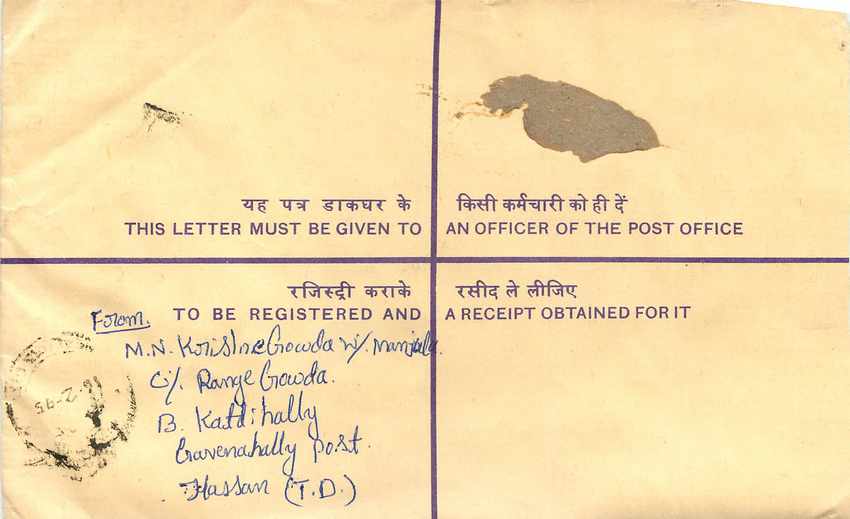 यह पत्र डाकघर के किसी कर्मचारी को ही दें
THIS LETTER MUST BE GIVEN TO AN OFFICER OF THE POST OFFICE
रजिस्ट्री कराके रसीद ले लीजिए
TO BE REGISTERED AND A RECEIPT OBTAINED FOR IT
From.
M.N. Gowda w/.
c/. Range Gowda.
B. Kattihally
Gavenahally Post.
Hassan (T.D.)
2-95